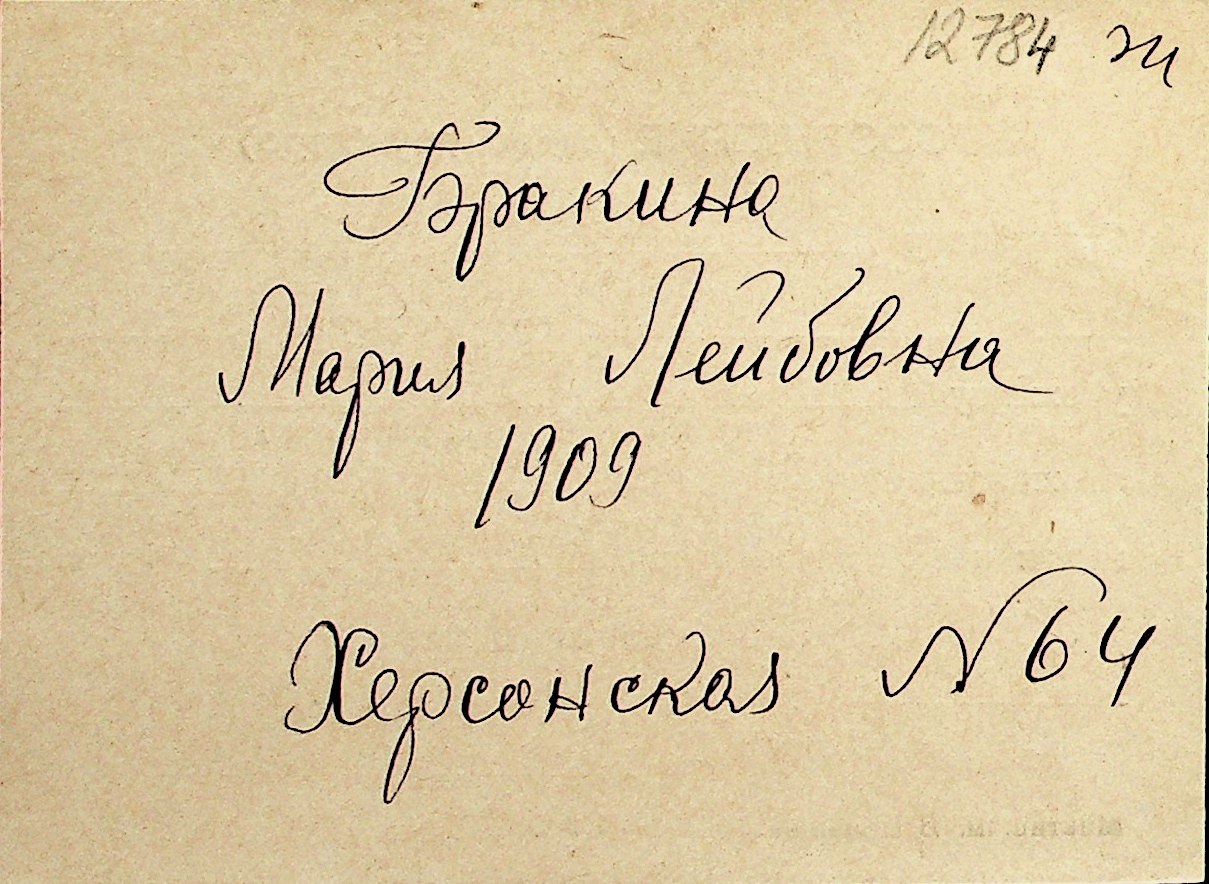 12784 ж
Бракина
Мария Лейбовна
1909
Херсонская № 64